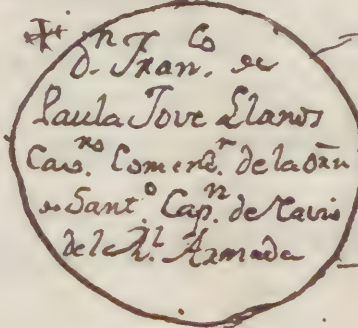 D.ⁿ Fran.ᶜᵒ de
Paula Jove Llanos
Cav.ʳᵒ Comend.ʳ de la orñ
de Sant.ᵒ Cap.ⁿ de Navio
de la R.ˡ Armada